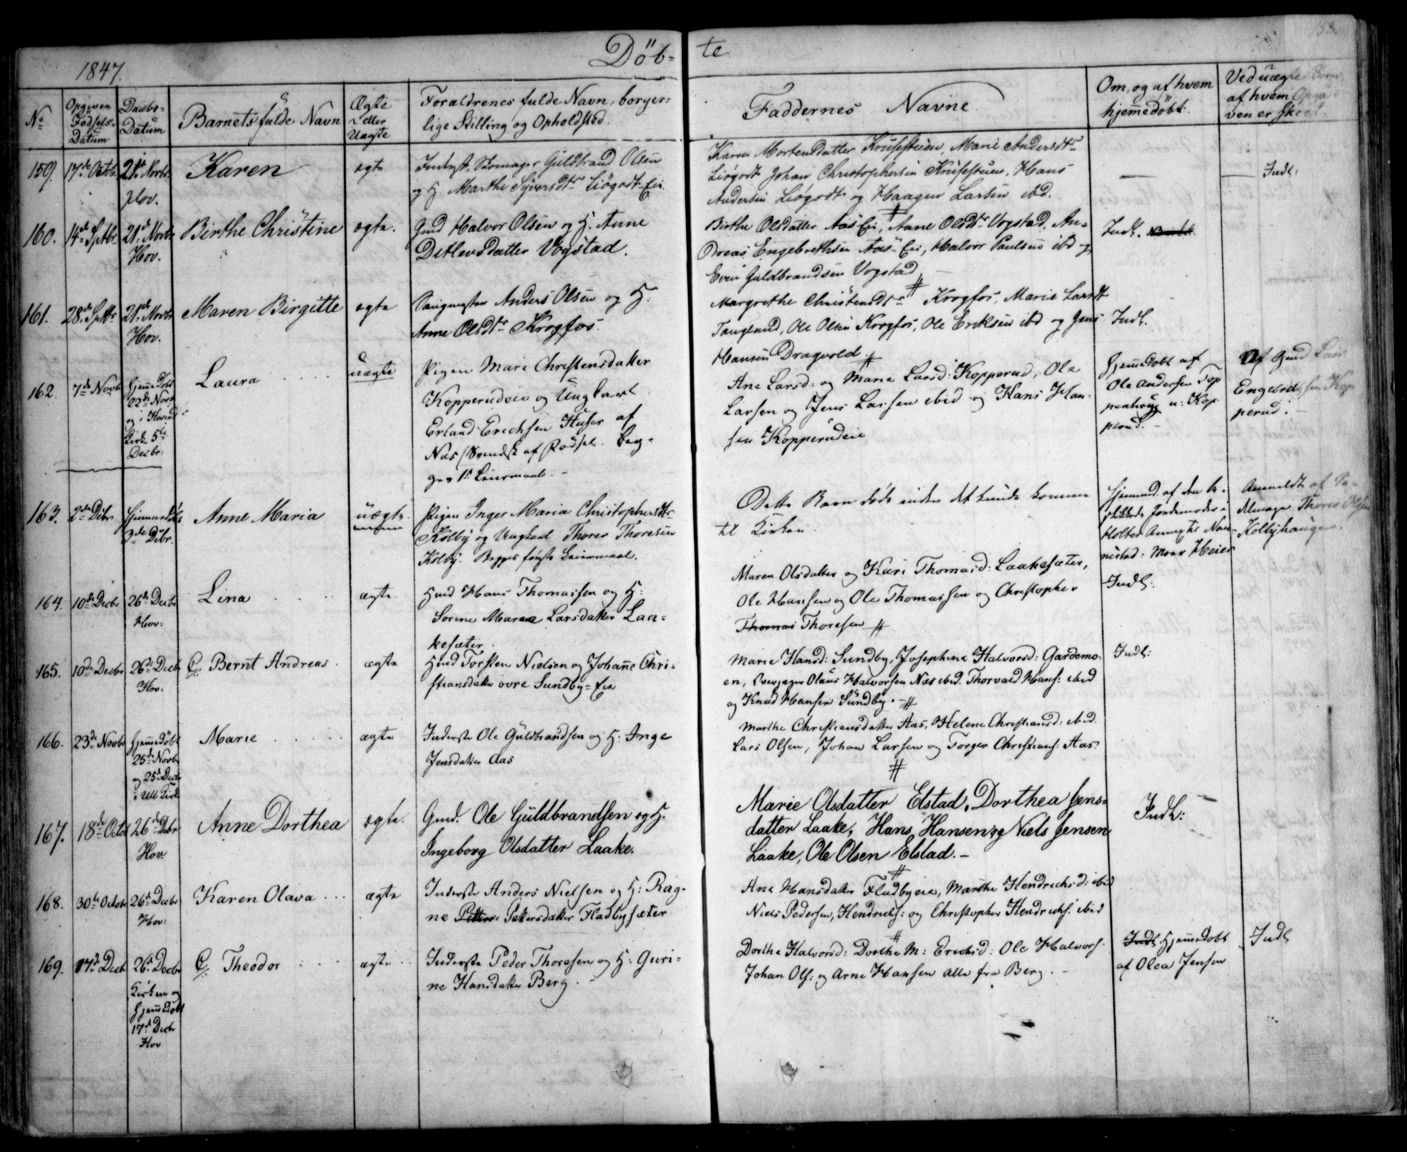 1847.
Döb-
te
No
Opgiven Fødsels-Datum
Daabs-Datum
Barnets fulde Navn
Ægte eller Uægte
Forældrenes fulde Navn, borger-
lige Stilling og Opholdsted.
Faddernes Navne
Om, og af hvem
hjemmedöbt.
Ved uægte
af hvem
ven er skeet.
159. 17de Octbr 21de Novbr Hov. Karen ægte
Guldbrand Olsen
og H. Marthe Syversdtr Liögodt-Eie
Karen Mortensdatter Krüsestuen, Marie Andersdtr
Liögodt Johan Christophersen Krüsestuen, Hans
Andersen Liögodt og Haagen Larsen ibd.
Indl.
160. 14de Septbr 21de Novbr Hov. Birthe Christine ægte.
Gmd Halvor Olsen og H. Anne
Ditlevsdatter Vogstad.
Birthe Olsdatter Aas Ei, Anne Olsdtr Vogstad, An-
dreas Engebrethsen Aas-Ei, Halvor Paulsen ibd og
Even Guldbrandsen Vogstad
Indl.
161. 28de Septbr 21de Novbr Hov. Maren Birgitte ægte
Anders Olsen og H.
Anne Olsdtr Krogfos
Margrethe Christensdtr Krogfos, Marie Larsdt
Tanglund, Ole Olsen Krogfos, Ole Eriksen ibd og Jens
Hansen Dragvold.
Indl.
162. 7de Novbr Hjemmedöbt 22de Novbr og i Hovind Kirke 5te Decbr. Laura uægte
Pigen Mari Christensdatter
Kopperudeie og Ungkarl
Erland Erichsen Huser af
Næs
Beg-
ges 1ste Leiermaal.
Ane Larsd: og Marie Larsd: Kopperud, Ole
Larsen og Jens Larsen ibid og Hans Han-
sen Kopperudeie
Hjemmedöbt af
Ole Andersen Top
penhaug u: Kop
perud.
Af Gmd Lars
Engebretsen Kop
perud.
163. 2de Dcbr. 3de Dcbr. Anne Maria uægte
Pigen Inger Maria Christophersdtr
Kölby og Ungkarl Thores Thoresen
Kölby. Begges første Leiermaal.
Dette Barn døde inden det kunde komme
til Kirken
Hjemmed. af den be-
skikkede Jordemoder i
Holter Annex Nan-
nestad: Mdme Heier
Anmeldt af
Thores Olsen
Kölbyhaugen
164. 10de Decbr 26de Decbr Hov: Lina ægte
Gmd Hans Thomassen og H:
Sörine Maren Larsdatter Laa-
kesæter.
Maren Olsdatter og Kari Thomasd: Laakesæter,
Ole Hansen og Ole Thomassen og Christopher
Thomas Thoresen
Indl.
165. 10de Decbr 26de Decbr Hov. Bernt Andreas ægte
Gmd Torsten Nielsen og Johanne Chri-
stiansdatter övre Sundby-Eie
Marie Hansd: Sundby, Josephine Halvorsd: Gardemo-
en, Olaus Halvorsen Næs ibid. Thorvald Hans: ibid
og Knud Hansen Sundby.
Indl:
166. 23de Novbr Hjemmedöbt 25de Novbr og 25de Decbr i Ull: Kirke Marie ægte
Inderste Ole Guldbrandsen og H. Inge
Jensdatter Aas
Marthe Christiansdatter Aas, Helene Christiansd: ibid.
Lars Olsen, Johan Larsen og Torger Christians: Aas
167. 18de Octbr 26de Dcbr Hov Anne Dorthea ægte.
Gmd. Ole Guldbrandsen og H.
Ingeborg Olsdatter Laake.
Marie Olsdatter Elstad, Dorthea Jens-
datter Laake, Hans Hansen og Niels Jensen
Laake, Ole Olsen Elstad.
Indl:
168. 30te Octobr 26de Decbr Hov: Karen Olava ægte
Inderste Anders Nielsen og H: Rag-
ne Petters Pettersdatter Fladbysæter
Ane Hansdatter Fladbyeie, Marthe Hendrichsd: ibid
Niels Pedersen, Hendrichs: og Christopher Hendrichs: ibid
169. 17de Decbr 26de Decbr Kirken og Hjemmedöbt 17de Decbr Hov Theodor ægte
Inderste Peder Thoresen og H. Guri-
ne Hansdatter Berg.
Dorthe Halvorsd: Dorthe M: Ericksd: Ole Halvors:
Johan Ols: og Arne Hansen alle fra Berg.
Indl Hjemmedöbt
af Olea Jensen
Indl